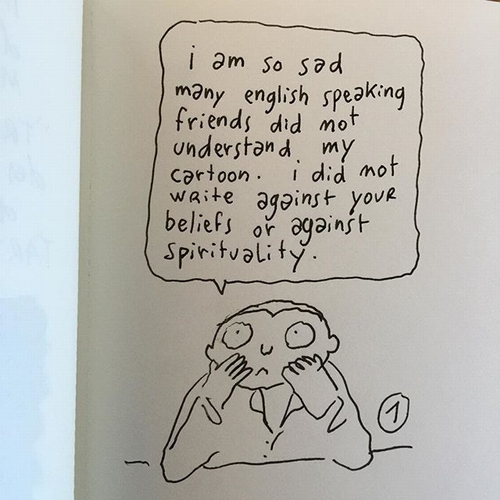 i am so sad
many english speaking
friends did not
understand my
cartoon. i did not
write against your
beliefs or against
spirituality.
1